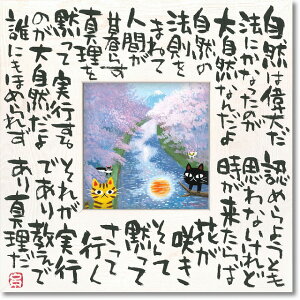 自然は偉大だ
法にかなったのが
大自然なんだよ
自然の
法則を
まねて
人間が
暮らす
真理を
黙って実行する。
のが大自然だよ
誰にもほめられず
認めらようとも
思わないけれど
時が来たらば
花が
咲き
そして
黙って
さって
行く
それが実行
であり教えで
あり真理だ